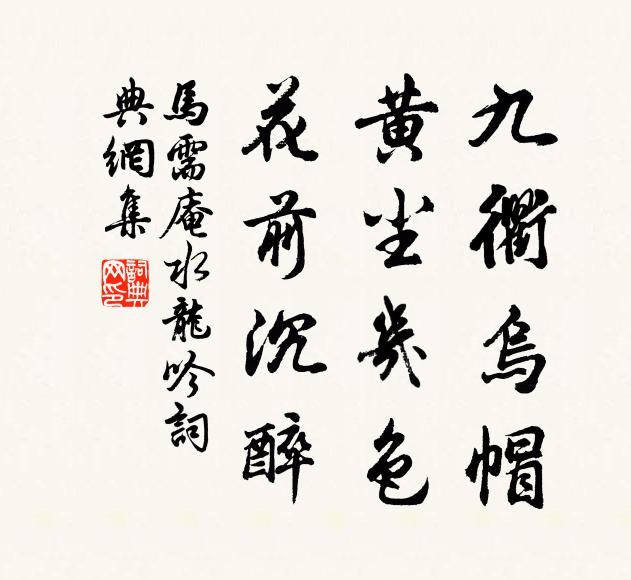 九衢烏帽
黄尘幾色
花前沉醉
馬需庵水龍吟詞
典網集
詞典網印